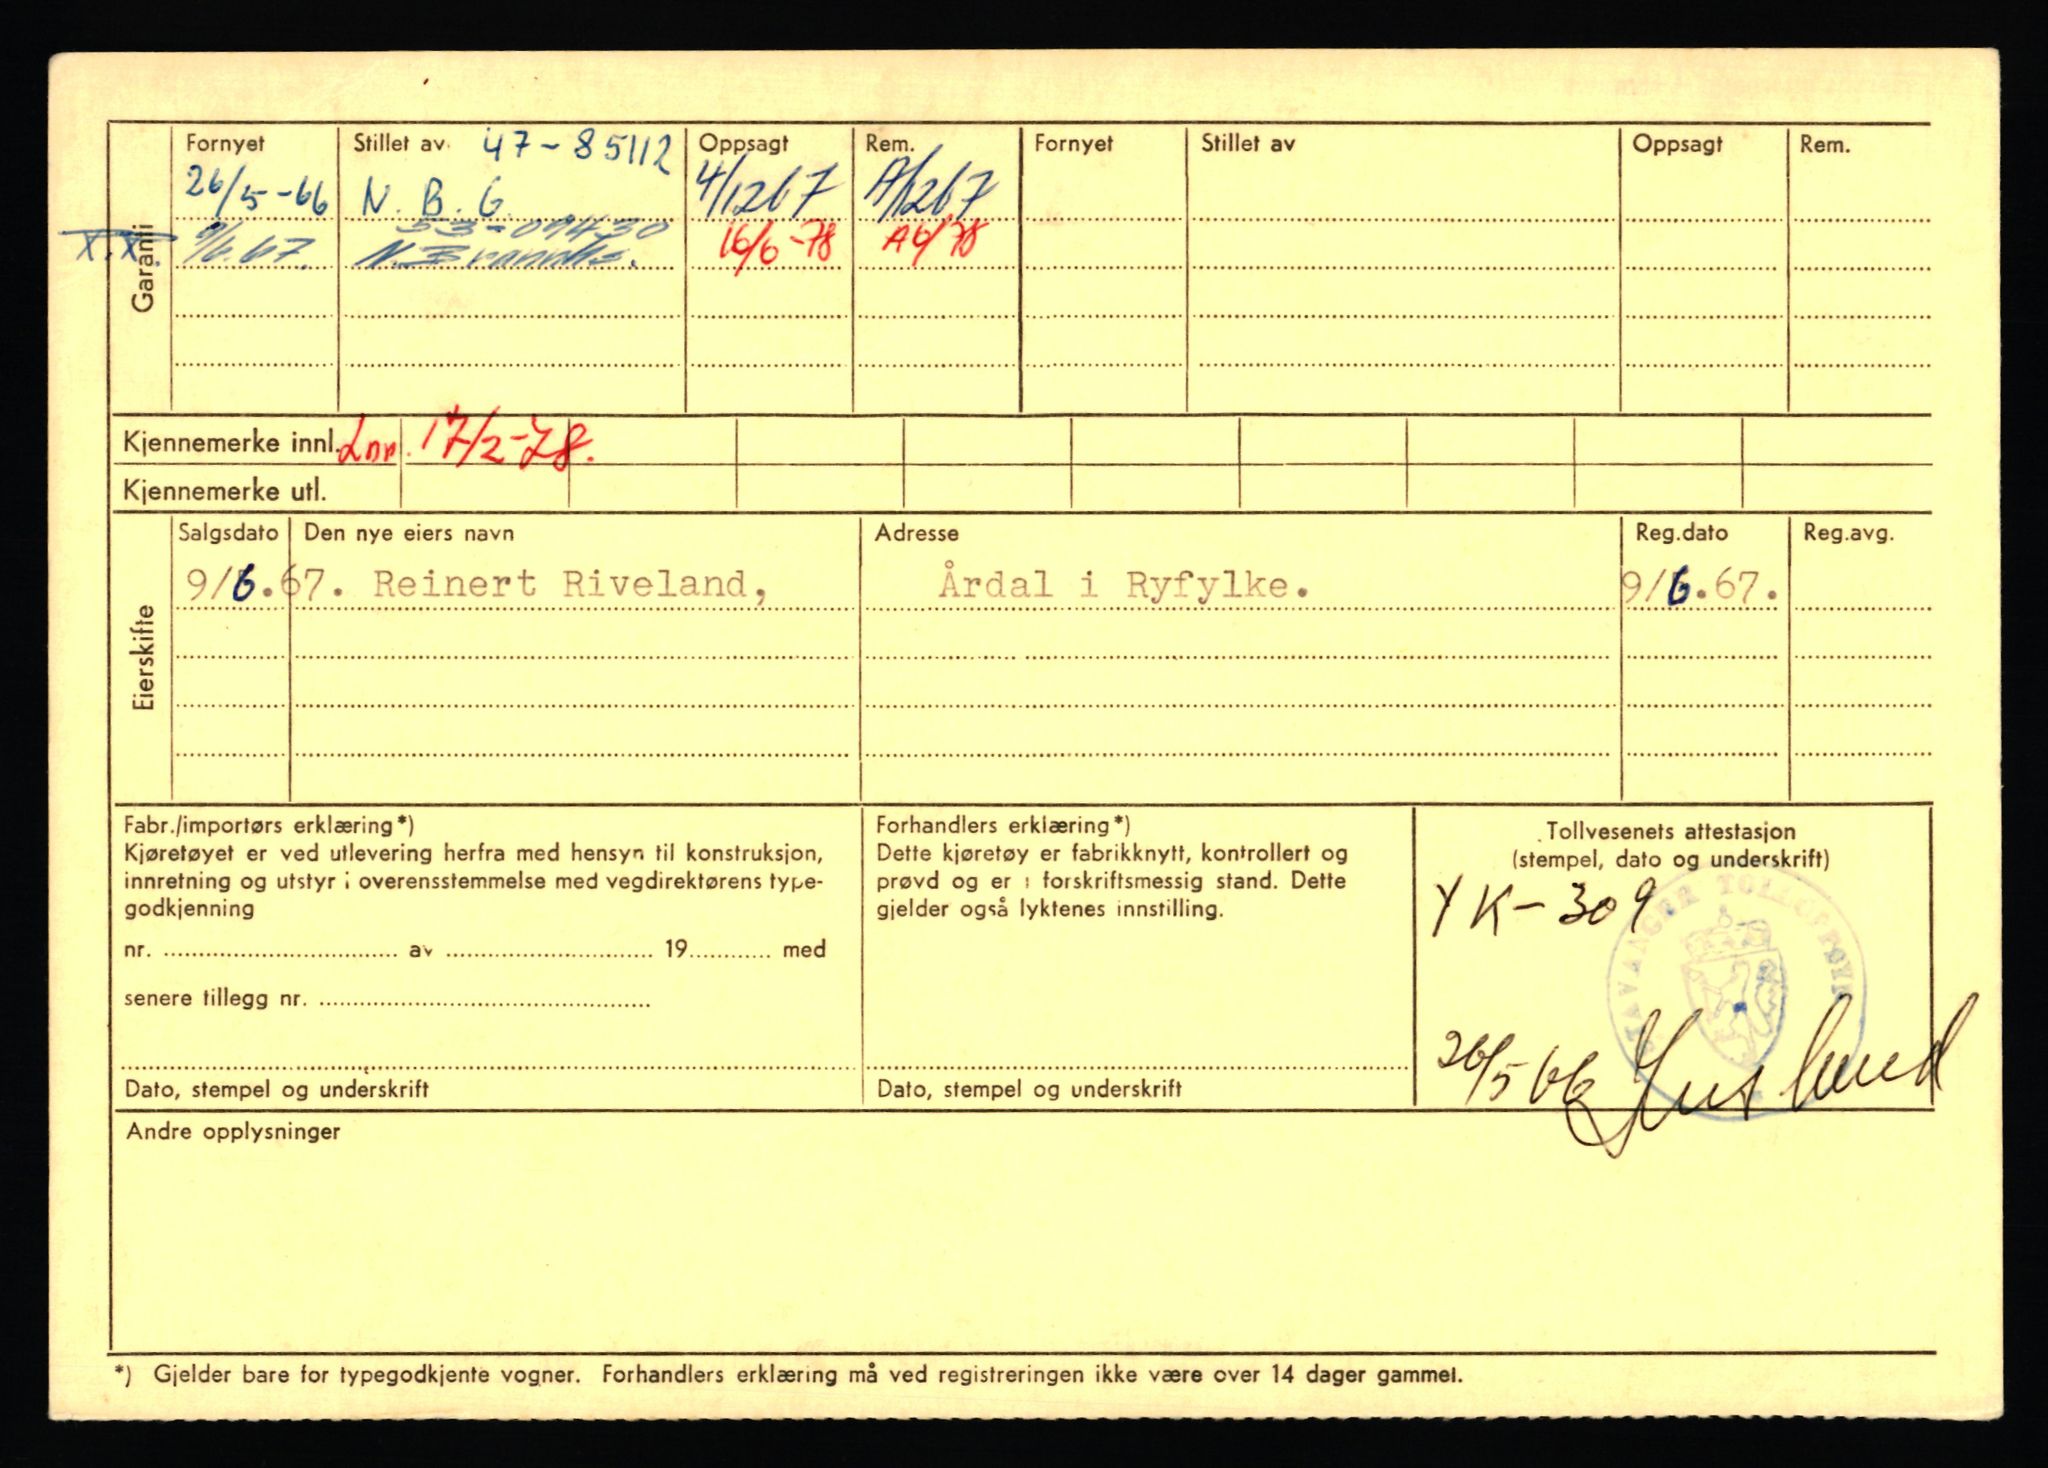 Garanti
Fornyet Stillet av 47-85112 Oppsagt Rem. Fornyet Stillet av Oppsagt Rem.
26/5-66 N. B. G. 4/1267 A/1267
53-09430
X.X. 9/6.67. N. Brannks. 16/6-78 A6/78
Kjennemerke innl. Lnn. 17/2-78.
Kjennemerke utl.
Eierskifte
Salgsdato Den nye eiers navn Adresse Reg.dato Reg.avg.
9/6.67. Reinert Riveland, Årdal i Ryfylke. 9/6.67.
Fabr./importørs erklæring*)
Kjøretøyet er ved utlevering herfra med hensyn til konstruksjon,
innretning og utstyr i overensstemmelse med vegdirektørens type-
godkjenning
nr. av 19 med
senere tillegg nr.
Dato, stempel og underskrift
Forhandlers erklæring*)
Dette kjøretøy er fabrikknytt, kontrollert og
prøvd og er i forskriftsmessig stand. Dette
gjelder også lyktenes innstilling.
Dato, stempel og underskrift
Tollvesenets attestasjon
(stempel, dato og underskrift)
YK-309
STAVANGER TOLLOPPSYN
26/5 66
Andre opplysninger
*) Gjelder bare for typegodkjente vogner. Forhandlers erklæring må ved registreringen ikke være over 14 dager gammel.